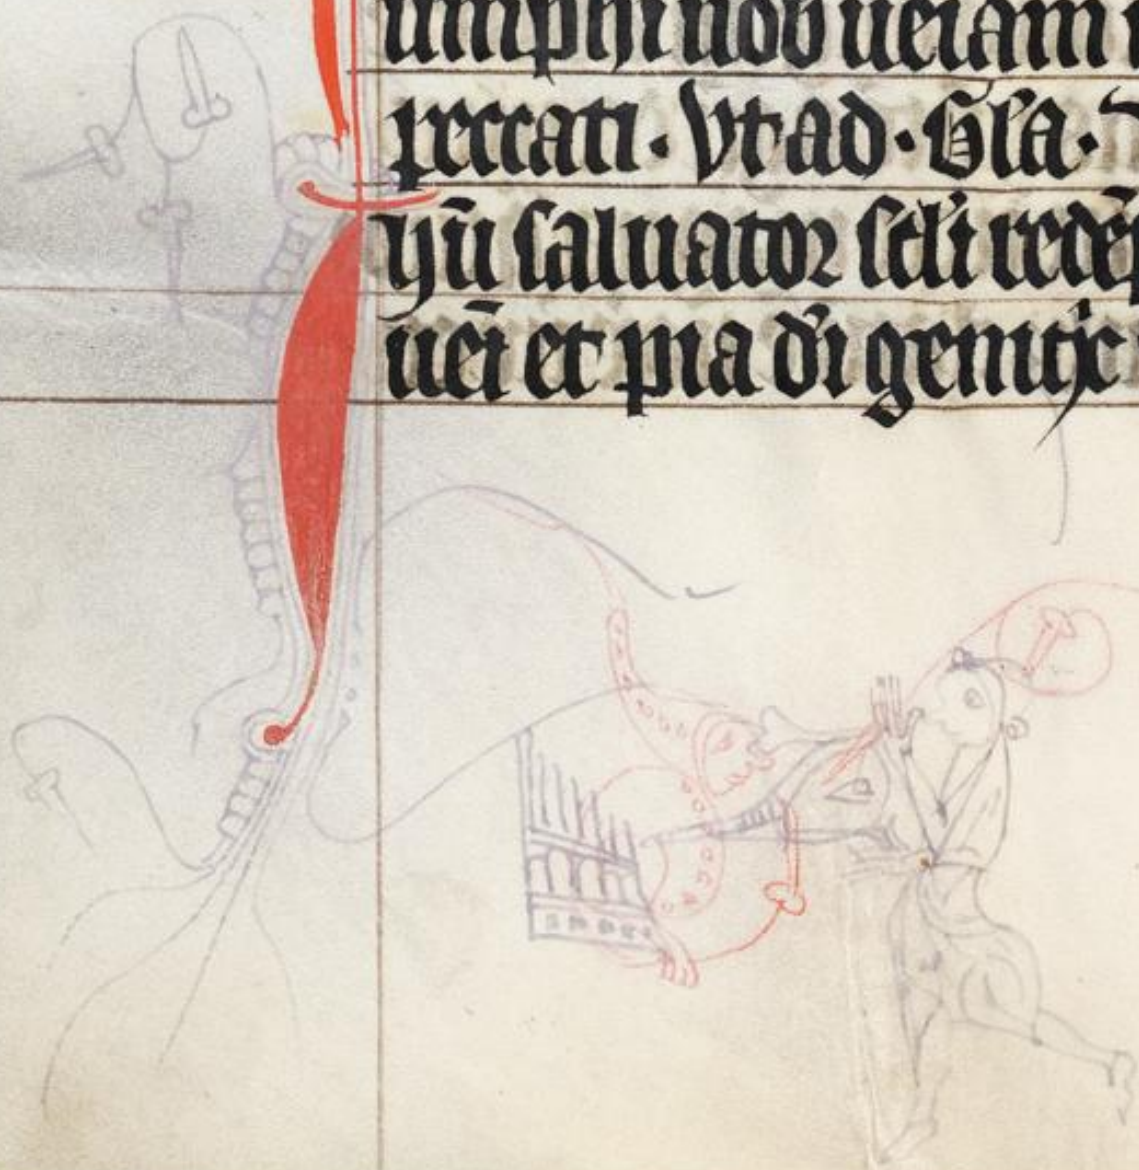 umphi nob ueiam
peccati · Vt ad · Gl'a ·
yhū saluator scl'i redēp
uēi et pia d'i genit'x